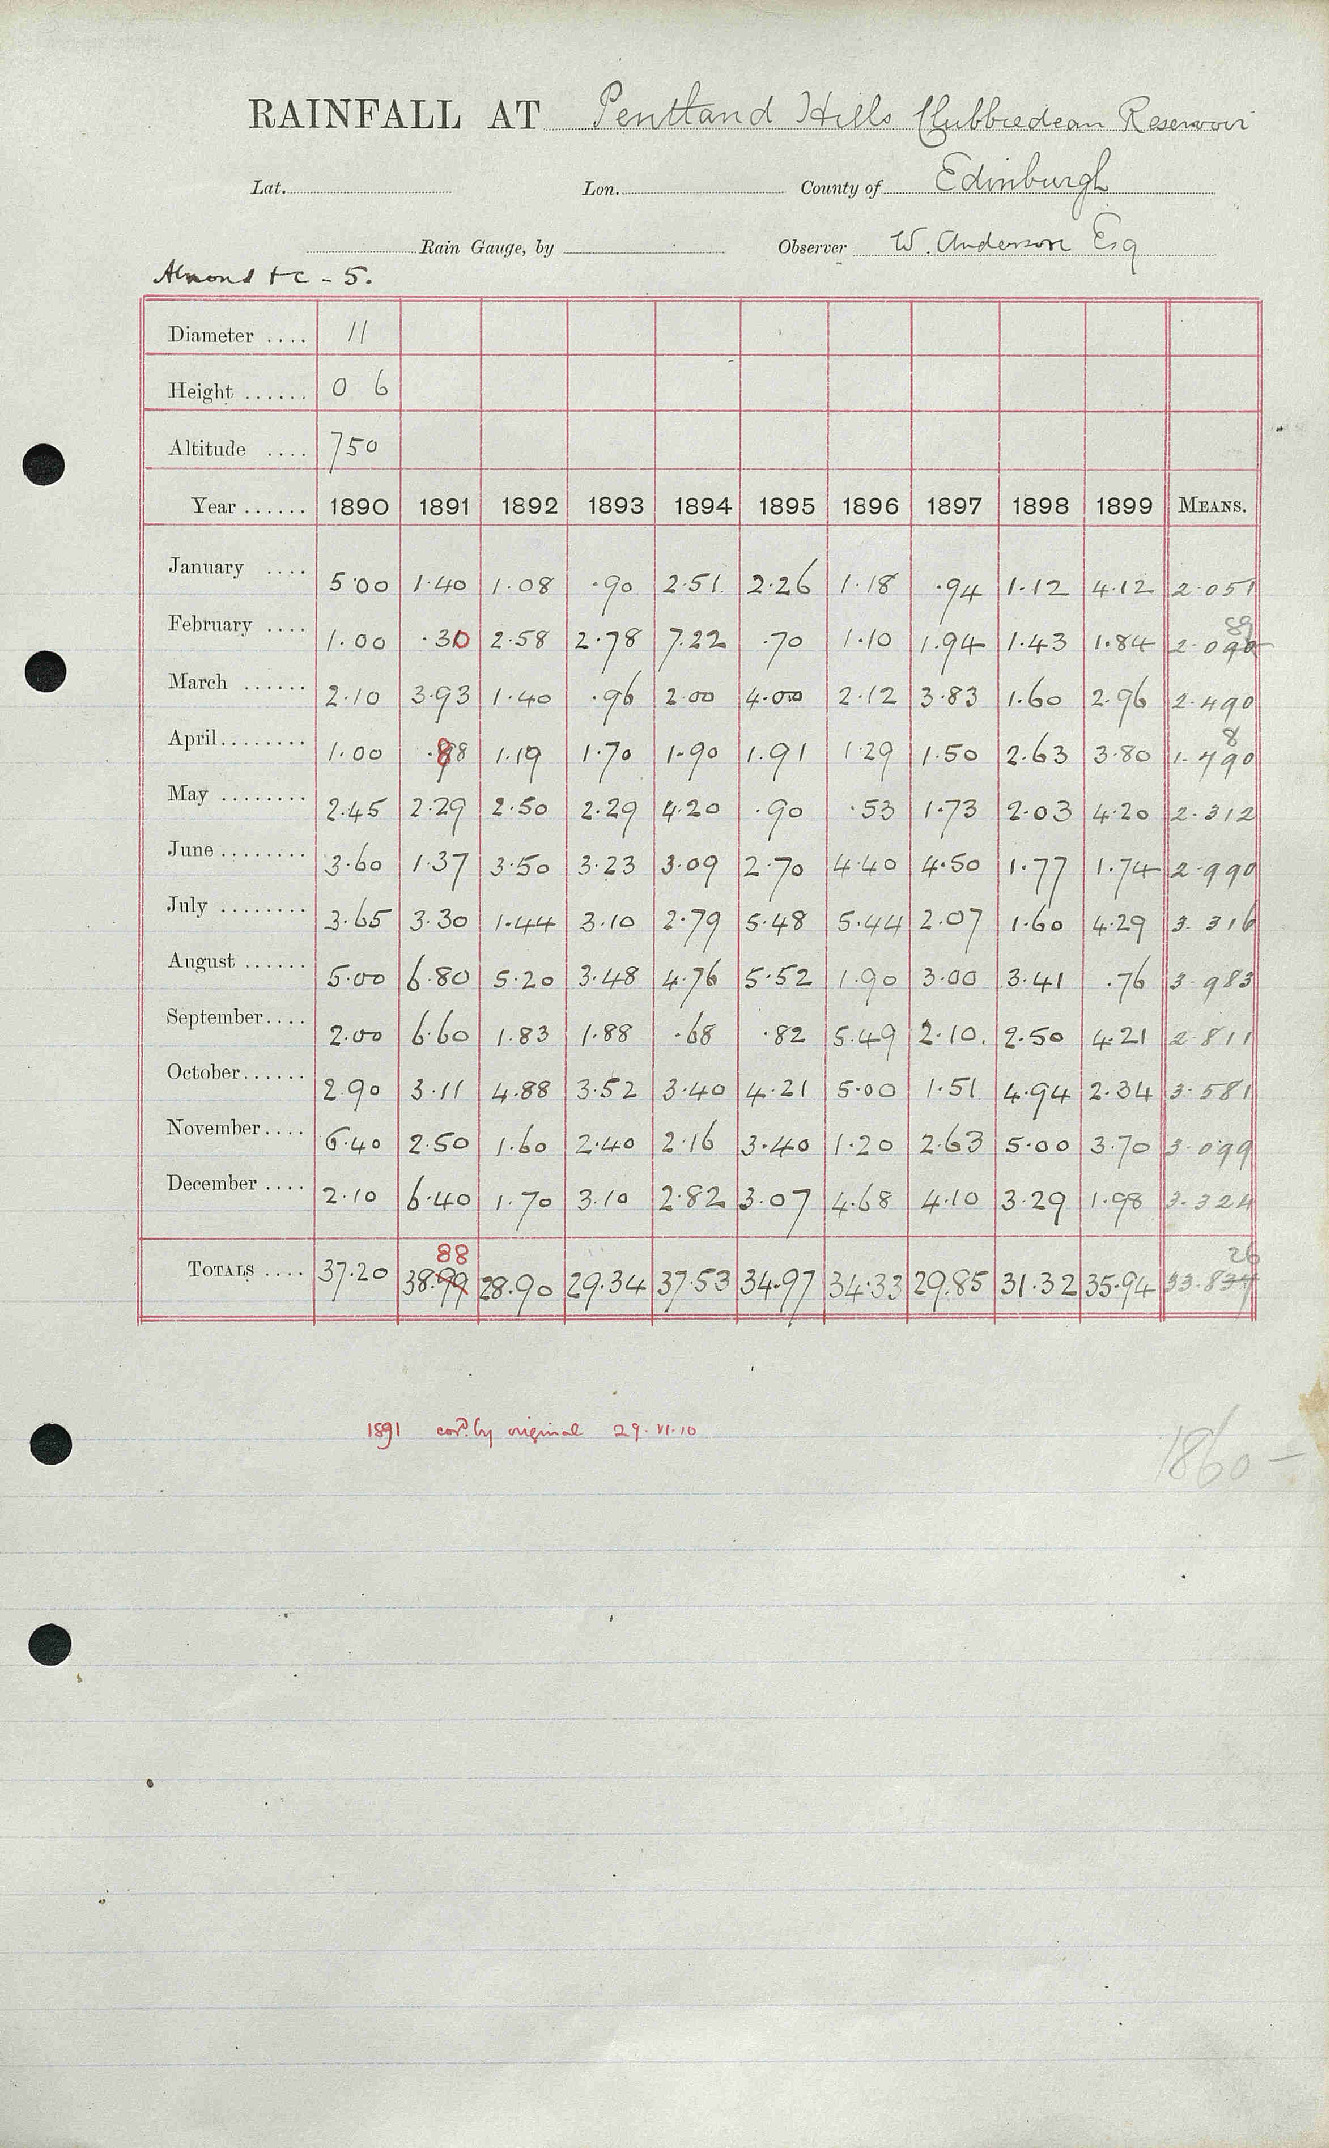 RAINFALL AT Pentland Hills Clubbiedean Reservoir
Lat. Lon. County of Edinburgh
Rain Gauge, by Observer W. Anderson Esq
Almond &c - 5.
Diameter .... 11
Height ...... 0 6
Altitude .... 750
Year ...... 1890 1891 1892 1893 1894 1895 1896 1897 1898 1899 MEANS.
January .... 5.00 1.40 1.08 .90 2.51 2.26 1.18 .94 1.12 4.12 2.051
89
February .... 1.00 .30 2.58 2.78 7.22 .70 1.10 1.94 1.43 1.84 2.090
March ...... 2.10 3.93 1.40 .96 2.00 4.00 2.12 3.83 1.60 2.96 2.490
8
April........ 1.00 .88 1.19 1.70 1.90 1.91 1.29 1.50 2.63 3.80 1.790
May ........ 2.45 2.29 2.50 2.29 4.20 .90 .53 1.73 2.03 4.20 2.312
June ........ 3.60 1.37 3.50 3.23 3.09 2.70 4.40 4.50 1.77 1.74 2.990
July ........ 3.65 3.30 1.44 3.10 2.79 5.48 5.44 2.07 1.60 4.29 3.316
August ...... 5.00 6.80 5.20 3.48 4.76 5.52 1.90 3.00 3.41 .76 3.983
September.... 2.00 6.60 1.83 1.88 .68 .82 5.49 2.10. 2.50 4.21 2.811
October...... 2.90 3.11 4.88 3.52 3.40 4.21 5.00 1.51 4.94 2.34 3.581
November.... 6.40 2.50 1.60 2.40 2.16 3.40 1.20 2.63 5.00 3.70 3.099
December .... 2.10 6.40 1.70 3.10 2.82 3.07 4.68 4.10 3.29 1.98 3.324
88 26
TOTALS .... 37.20 38.99 28.90 29.34 37.53 34.97 34.33 29.85 31.32 35.94 33.837
1891 cord. by original 29.VI.10
1860 -